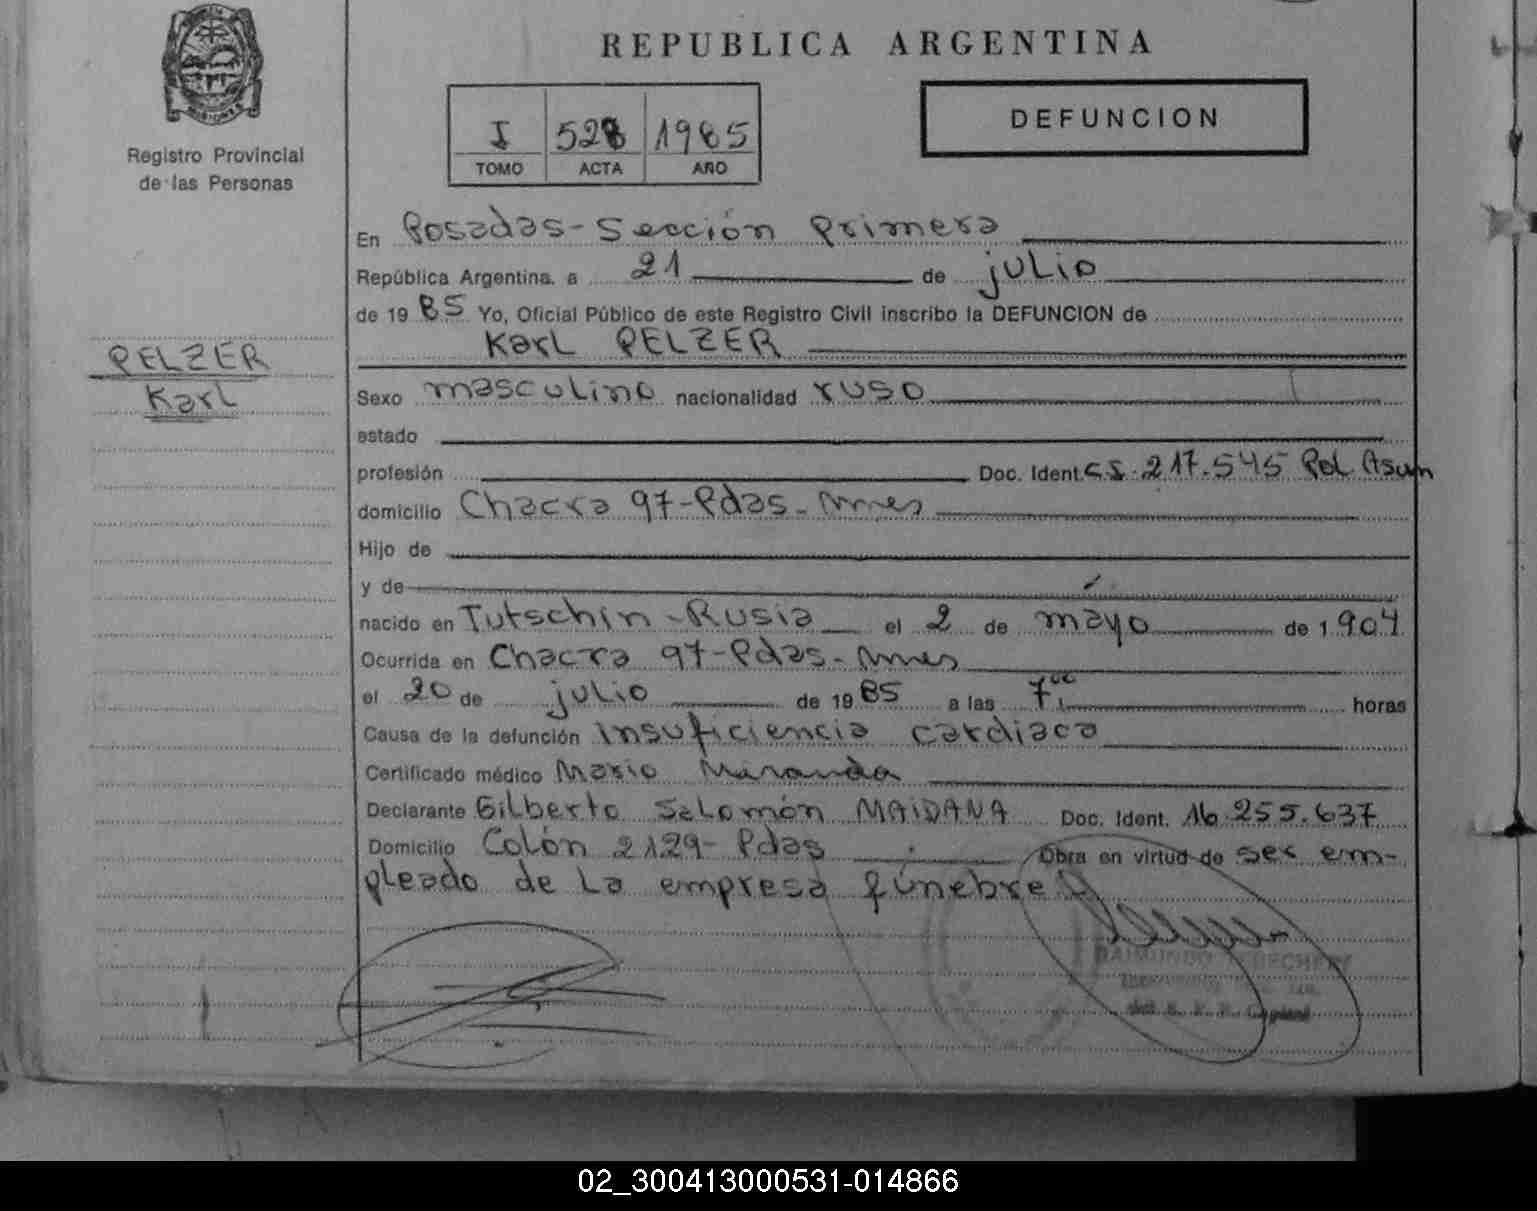 MISIONES
Registro Provincial
de las Personas
PELZER
Karl
REPUBLICA ARGENTINA
I 528 1985
TOMO ACTA AÑO
DEFUNCION
En Posadas-Sección Primera
República Argentina. a 21 de julio
de 19 85 Yo, Oficial Público de este Registro Civil inscribo la DEFUNCION de
Karl PELZER
Sexo masculino nacionalidad ruso
estado
profesión Doc. Ident. C.I. 217.545 Pol. Asun
domicilio Chacra 97-Pdas-Mnes
Hijo de
y de
nacido en Tutschin-Rusia el 2 de mayo de 1 904
Ocurrida en Chacra 97-Pdas-Mnes
el 20 de julio de 19 85 a las 7 horas
Causa de la defunción insuficiencia cardiaca
Certificado médico Mario Miranda
Declarante Gilberto Salomón MAIDANA Doc. Ident. 16.255.637
Domicilio Colón 2129-Pdas Obra en virtud de ser em-
pleado de la empresa fúnebre
RAIMUNDO
Capital
02_300413000531-014866